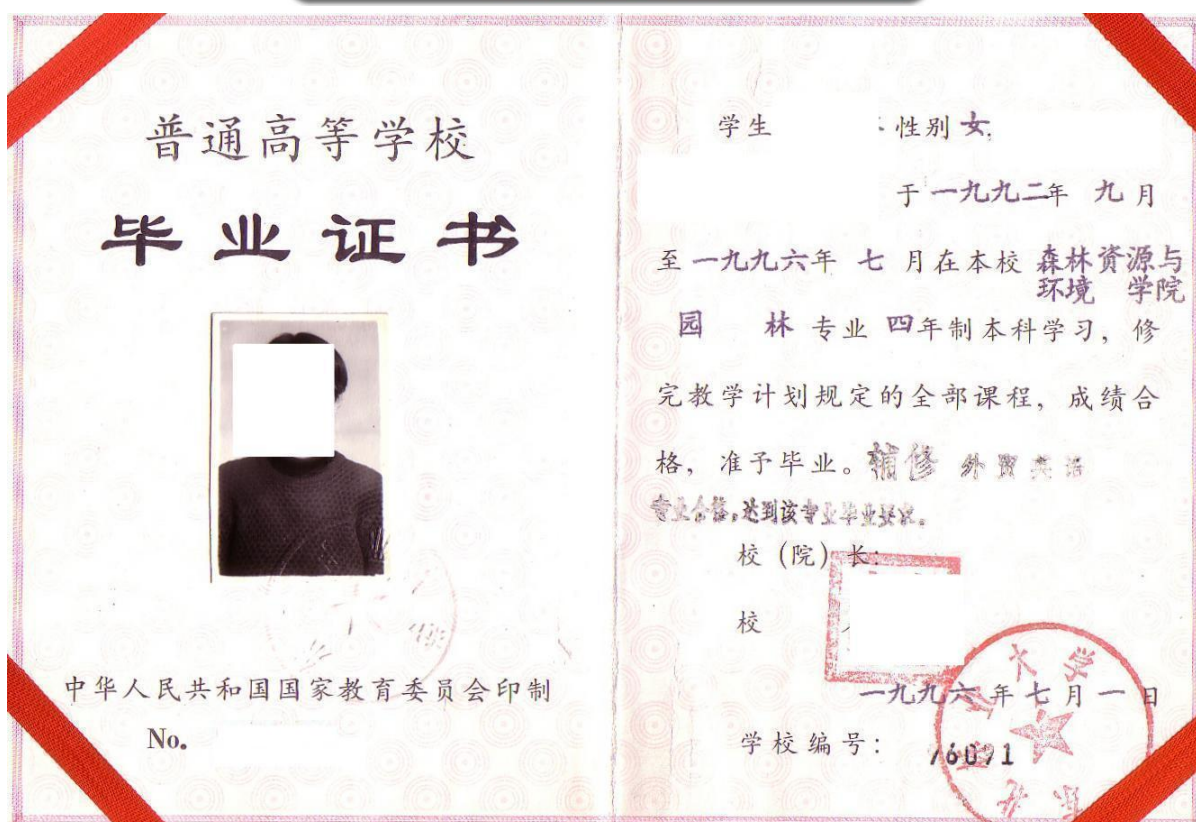 普通高等学校
毕业证书
中华人民共和国国家教育委员会印制
No.
学生 性别 女,
于 一九九二年 九月
至 一九九六年 七 月在本校 森林资源与
环境 学院
园 林 专业 四年制本科学习, 修
完教学计划规定的全部课程, 成绩合
格, 准予毕业。辅修 外贸英语
专业合格,达到该专业毕业要求。
校 (院) 长:
校
一九九六年七月一日
学校编号:
大学